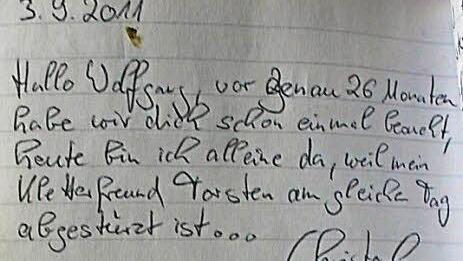 3.9.2011
Hallo Wolfgang, vor genau 26 Monaten
habe wir dich schon einmal besucht,
heute bin ich alleine da, weil mein
Kletterfreund Torsten am gleiche Tag
abgestürzt ist...